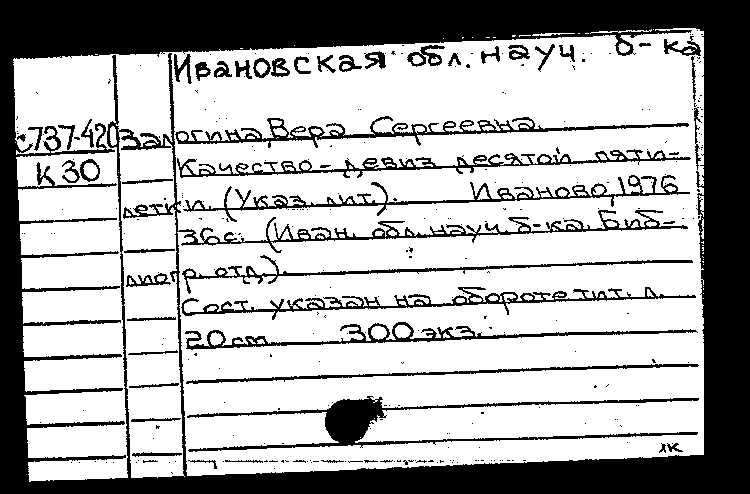 Ивановская обл. науч. б-ка
с737-420 Залогина, Вера Сергеевна.
К 30 Качество - девиз десятой пяти-
летки. (Указ. лит.). Иваново, 1976
36с. (Иван. обл. науч. б-ка. Биб-
лиогр. отд.).
Сост. указан на обороте тит. л.
20 см 300 экз.